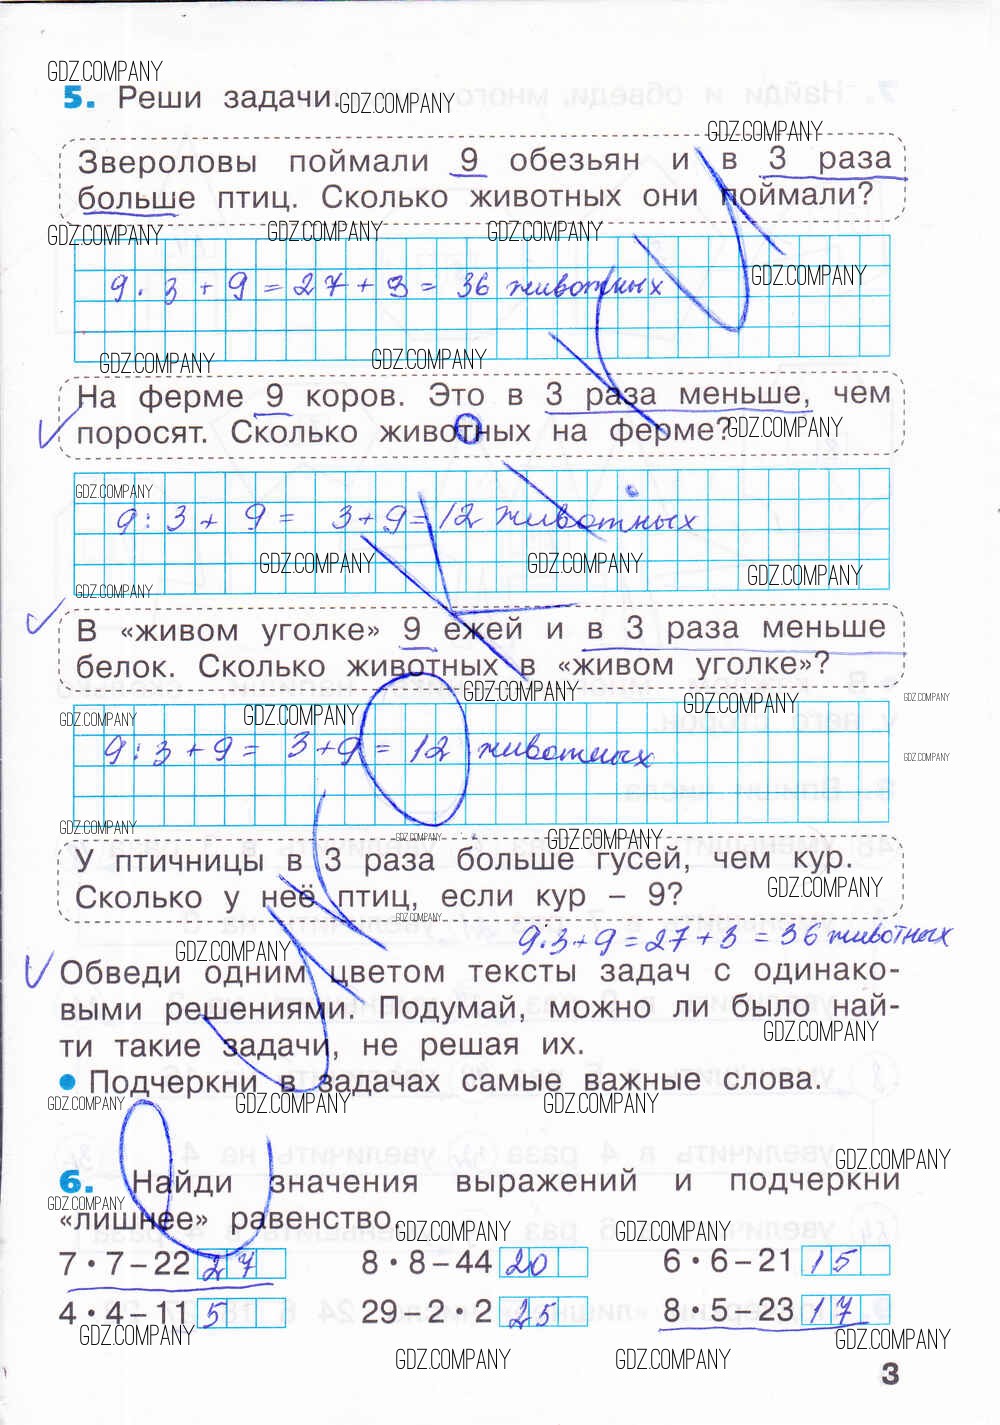 GDZ.COMPANY
5. Реши задачи. GDZ.COMPANY
GDZ.COMPANY
Звероловы поймали 9 обезьян и в 3 раза
больше птиц. Сколько животных они поймали?
GDZ.COMPANY GDZ.COMPANY GDZ.COMPANY
GDZ.COMPANY
9 · 3 + 9 = 27 + 3 = 36 животных
GDZ.COMPANY GDZ.COMPANY
На ферме 9 коров. Это в 3 раза меньше, чем
поросят. Сколько животных на ферме? GDZ.COMPANY
GDZ.COMPANY
9 : 3 + 9 = 3 + 9 = 12 животных
GDZ.COMPANY GDZ.COMPANY GDZ.COMPANY
GDZ.COMPANY
В «живом уголке» 9 ежей и в 3 раза меньше
белок. Сколько животных в «живом уголке»?
GDZ.COMPANY GDZ.COMPANY GDZ.COMPANY
GDZ.COMPANY GDZ.COMPANY
9 : 3 + 9 = 3 + 9 = 12 животных
GDZ.COMPANY
GDZ.COMPANY GDZ.COMPANY GDZ.COMPANY
У птичницы в 3 раза больше гусей, чем кур.
Сколько у неё птиц, если кур – 9?
GDZ.COMPANY
GDZ.COMPANY
9 · 3 + 9 = 27 + 3 = 36 животных
GDZ.COMPANY
Обведи одним цветом тексты задач с одинако-
выми решениями. Подумай, можно ли было най-
GDZ.COMPANY
ти такие задачи, не решая их.
• Подчеркни в задачах самые важные слова.
GDZ.COMPANY GDZ.COMPANY GDZ.COMPANY
GDZ.COMPANY
6. Найди значения выражений и подчеркни
GDZ.COMPANY
«лишнее» равенство.
GDZ.COMPANY GDZ.COMPANY
7 · 7 – 22 27 8 · 8 – 44 20 6 · 6 – 21 15
4 · 4 – 11 5 29 – 2 · 2 25 8 · 5 – 23 17
GDZ.COMPANY GDZ.COMPANY
GDZ.COMPANY GDZ.COMPANY
3